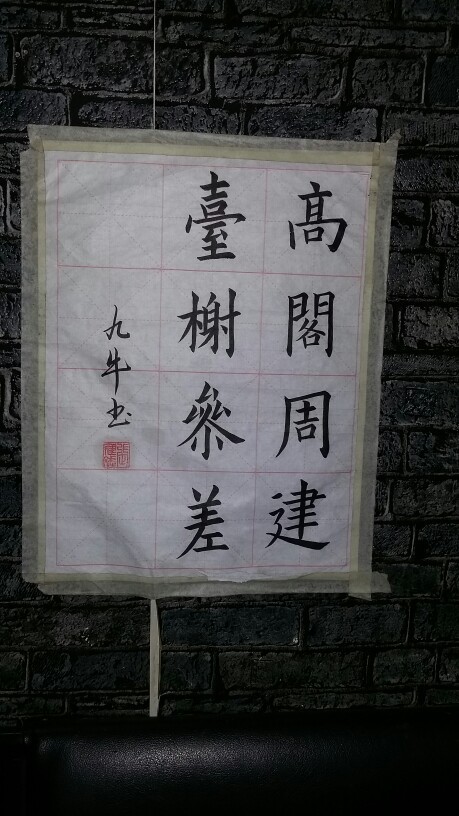 高閣周建
臺榭參差
九牛书